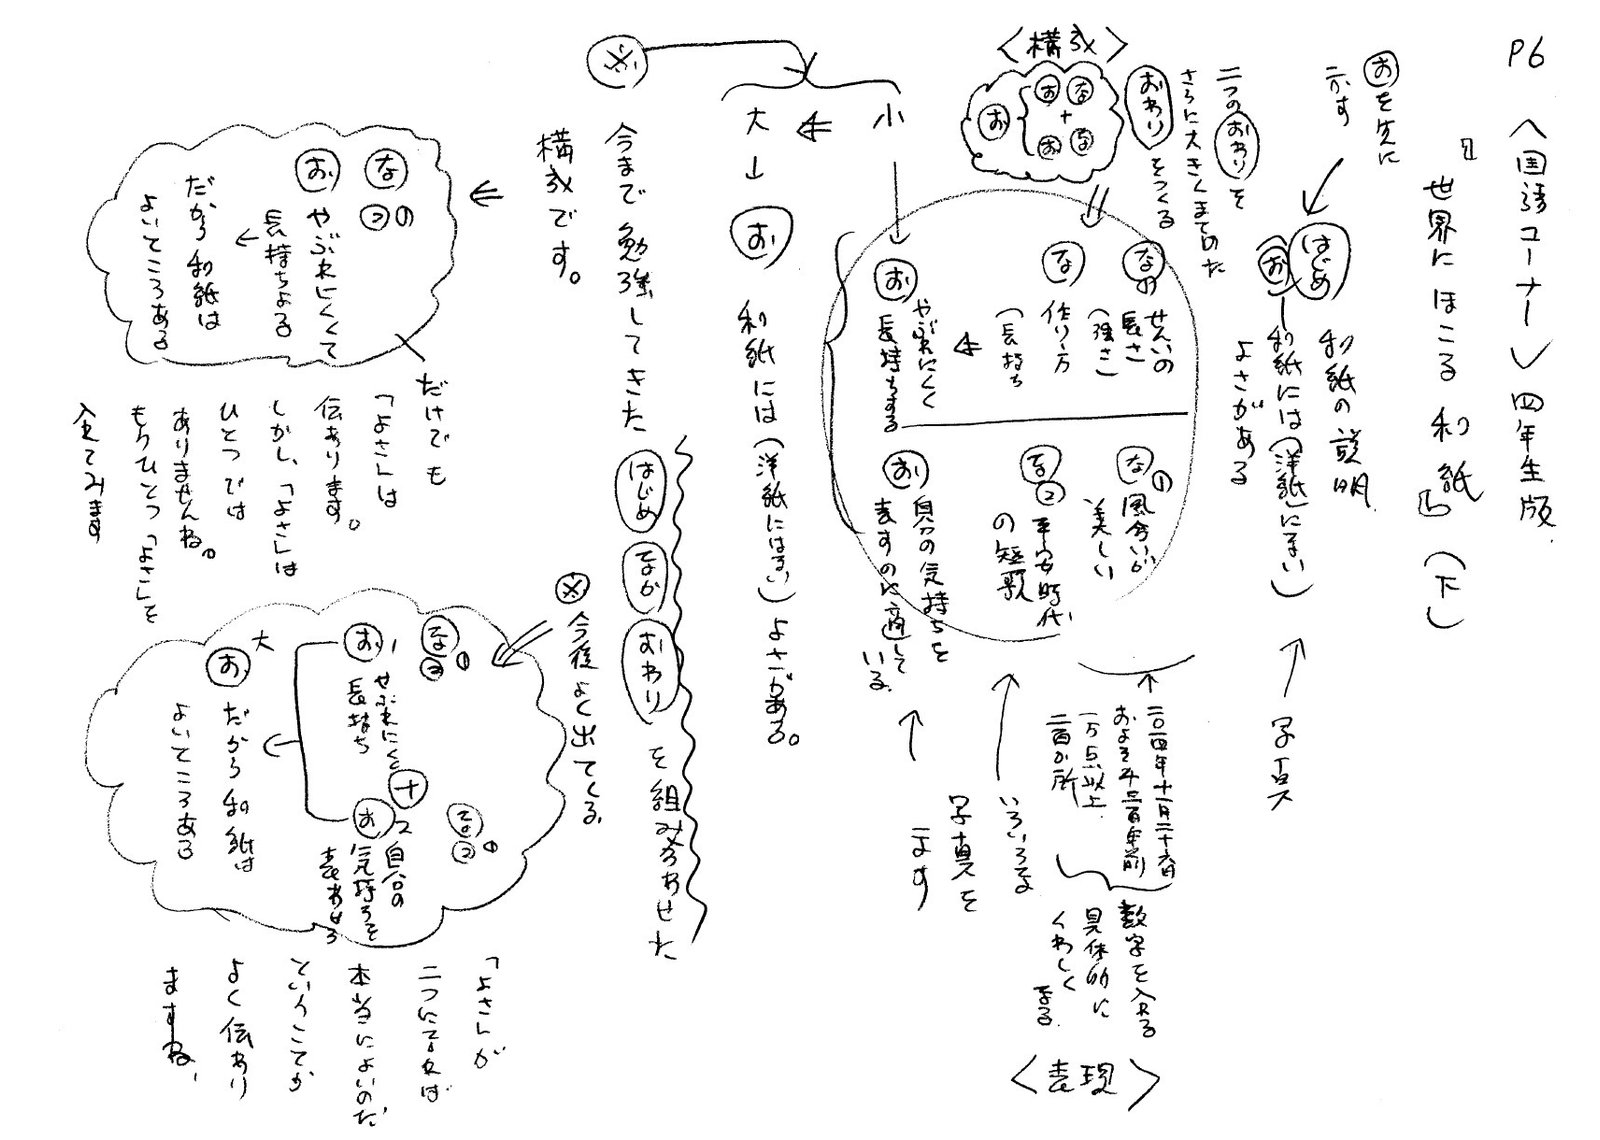 P6
〈国語コーナー〉四年生版
『世界にほこる和紙』（下）
おを先に
示す
はじめ
和紙の説明
お
和紙には（洋紙にはない）
よさがある
写真
二つのおわりを
さらに大きくまとめた
おわりをつくる
〈構成〉
な
お
＋
な
お
お
な
せんいの
長さ
（強さ）
な
作り方
（長持ち
お
やぶれにくく
長持ちする
な①
風合いが
美しい
な②
平安時代
の短歌
お
自分の気持ちを
表すのに適して
いる
二〇一四年十一月二十六日
およそ千三百年前
一万点以上
二百か所
数字を入れる
具体的に
くわしく
なる
〈表現〉
いろいろな
写真を
示す
小
大
お
和紙には（洋紙にはない）よさがある。
※
今まで勉強してきた はじめ なか おわり を組み合わせた
構成です。
な
②の
お
やぶれにくくて
長持ちよる
だから和紙は
よいところある
だけでも
「よさ」は
伝わります。
しかし、「よさ」は
ひとつでは
ありませんね。
もうひとつ「よさ」を
入れてみます
※今後よく出てくる
な
①
②
お1
やぶれにくく
長持ち
＋
な
①
②
お2
自分の
気持ちを
表わせる
大
お
だから和紙は
よいところある
「よさ」が
二つになれば
本当によいのだ
ということが
よく伝わり
ますね、